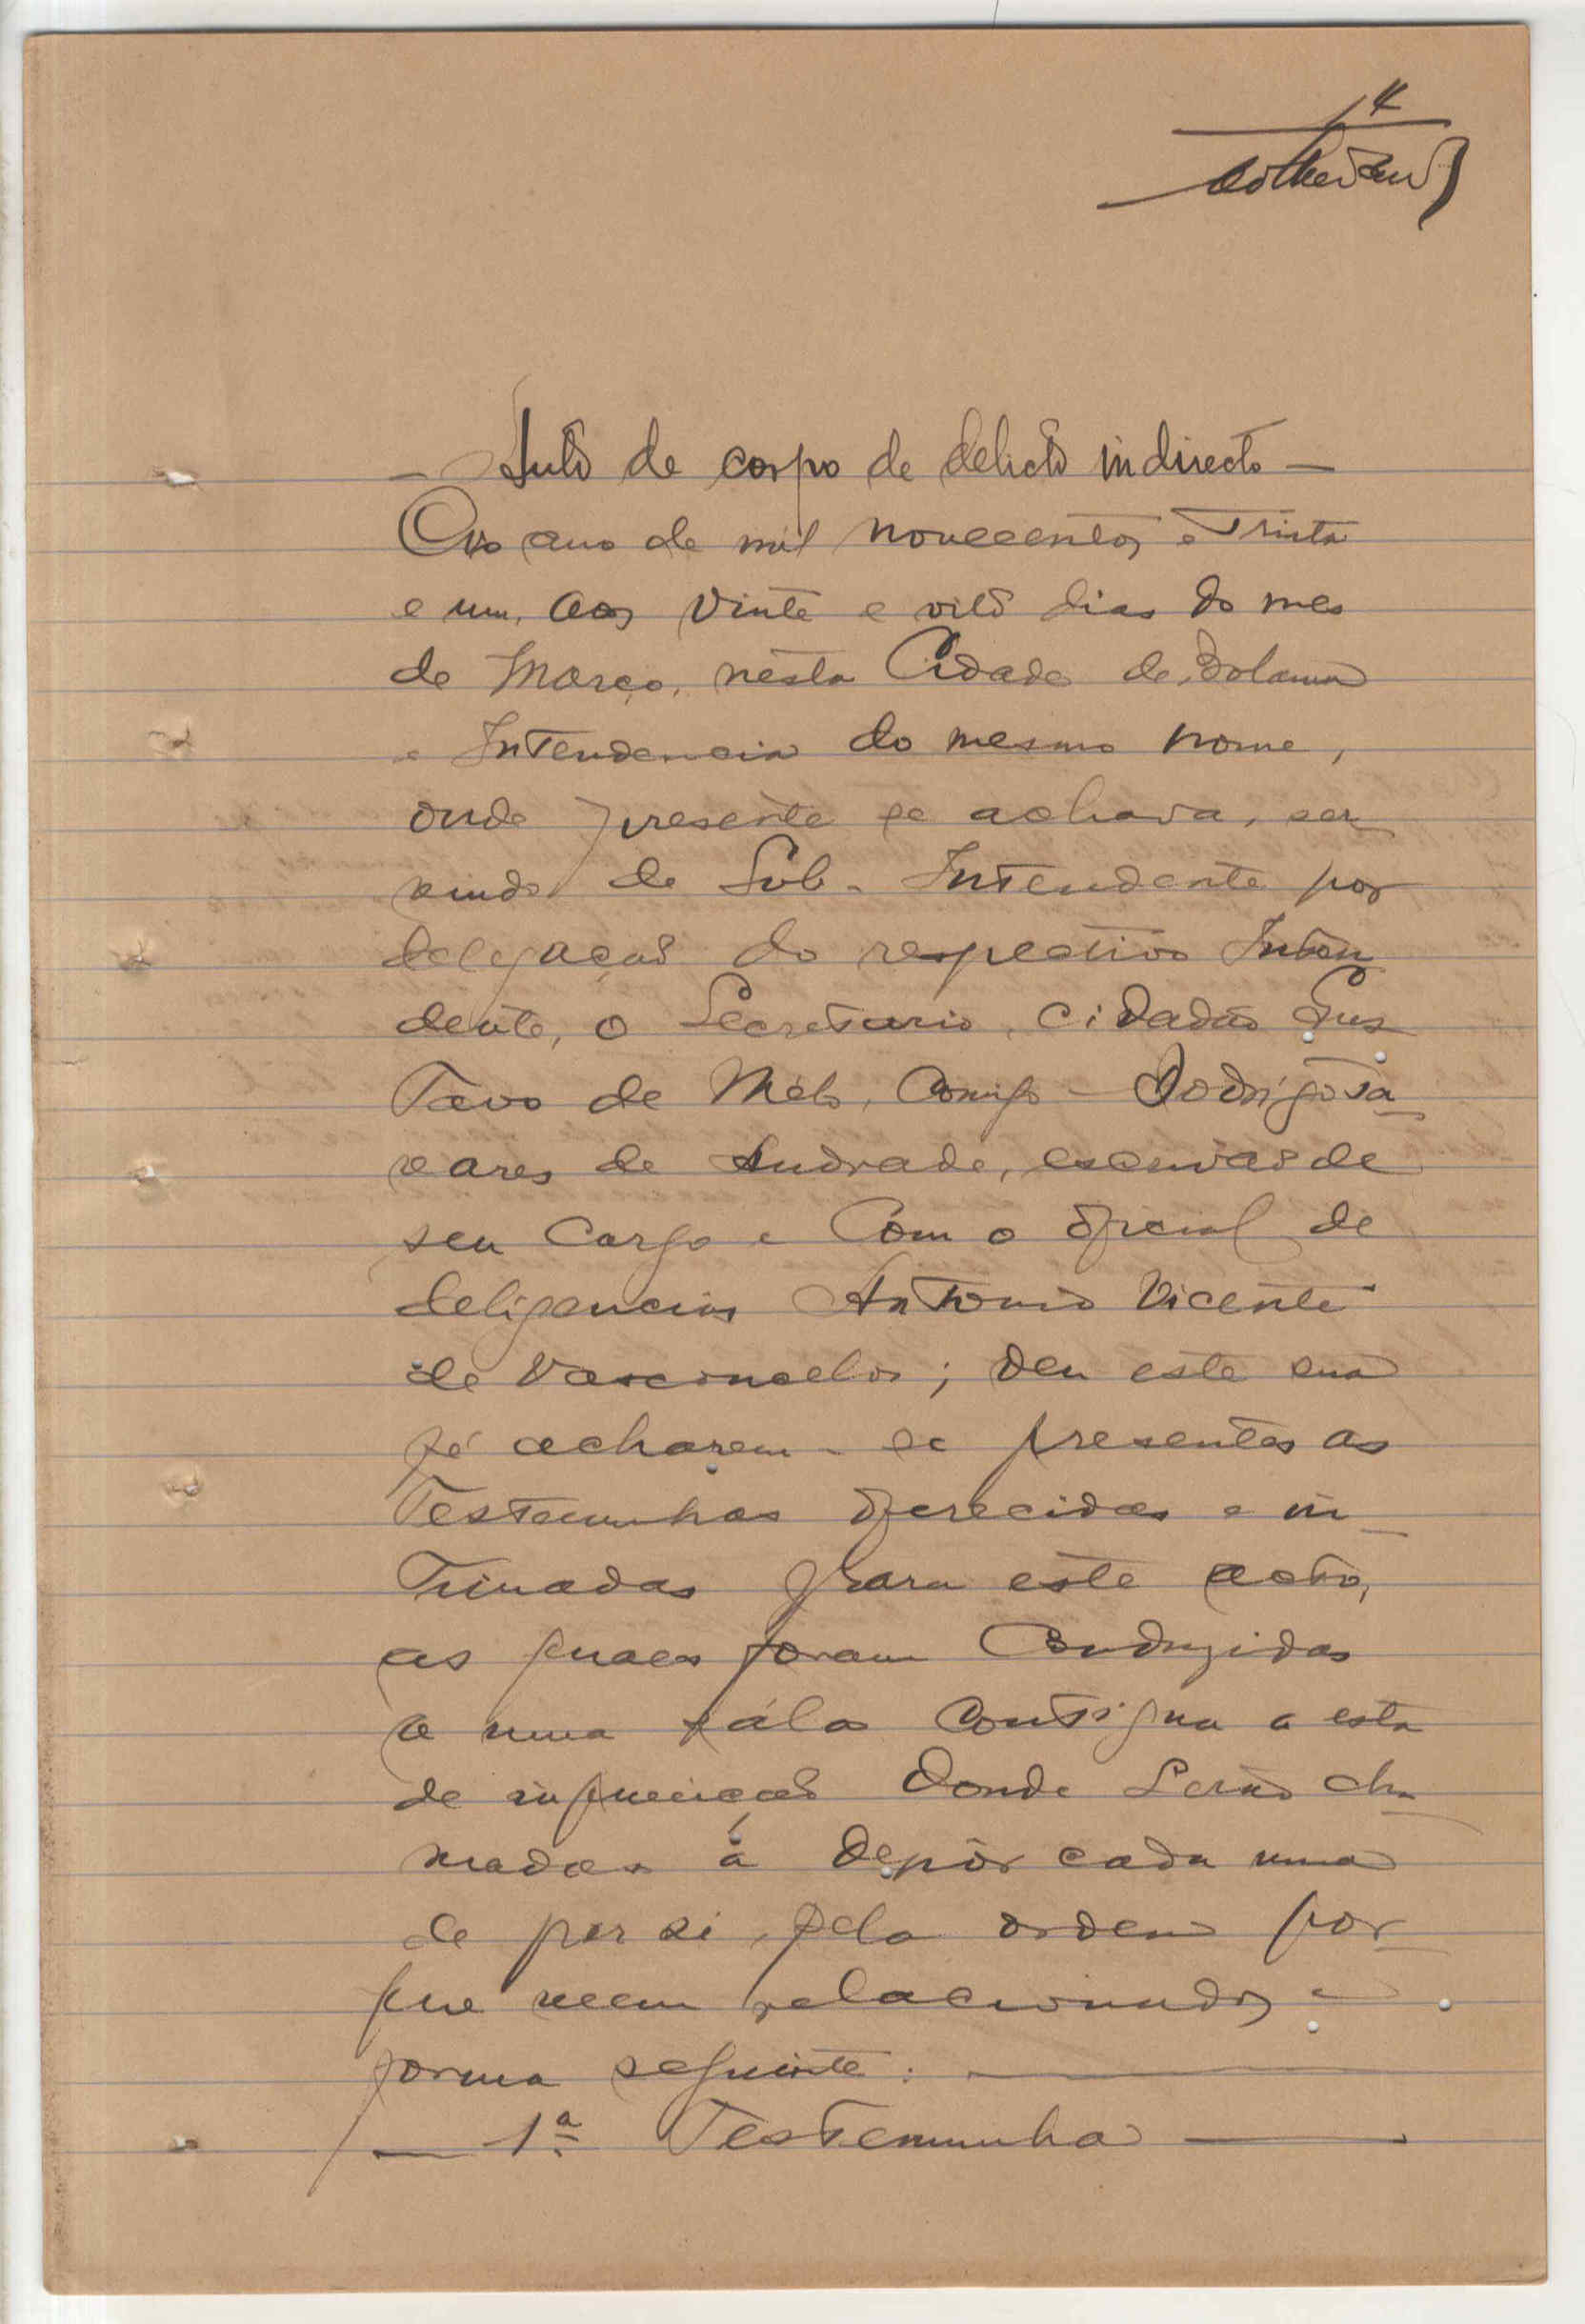 4
- Auto de corpo de delicto indirecto -
Ao ano de mil novecentos e trinta
e um, aos vinte e oito dias do mes
de Março, nesta Cidade de Bolama
e Intendencia do mesmo nome,
onde presente se achava, ser
vindo de Sub-Intendente por
delegação do respectivo Inten
dente, o Secretario, cidadão Gus
tavo de Mélo, comigo - Rodrigo Ta
vares de Andrade, escrivão de
seu cargo e com o oficial de
deligencias Antonio Vicente
de Vasconcelos; deu este sua
fé acharem-se presentes as
testemunhas oferecidas e in
timadas para este acto,
as quaes foram conduzidas
a uma sála contigua a esta
de inquirição donde serão cha
madas á depôr cada uma
de per si, pela ordem por
que veem relacionados e
forma seguinte:
- 1ª Testemunha -